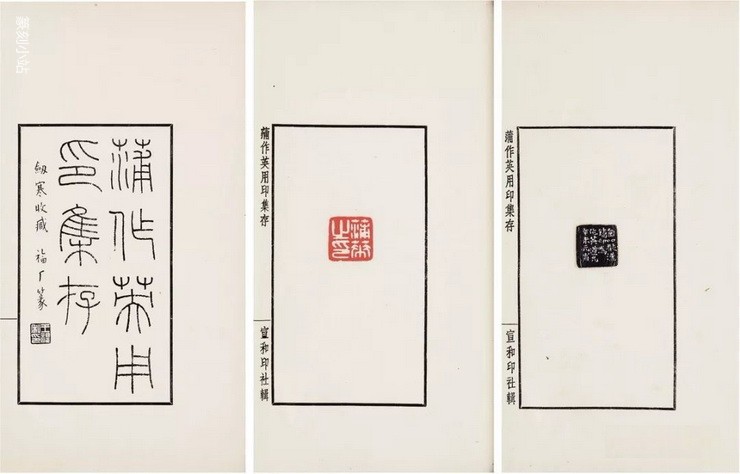 篆刻小站
蒲作英用
印集存
劍寒收藏 福厂篆
蒲作英用印集存
宣和印社輯
蒲華
之印
蒲作英用印集存
宣和印社輯